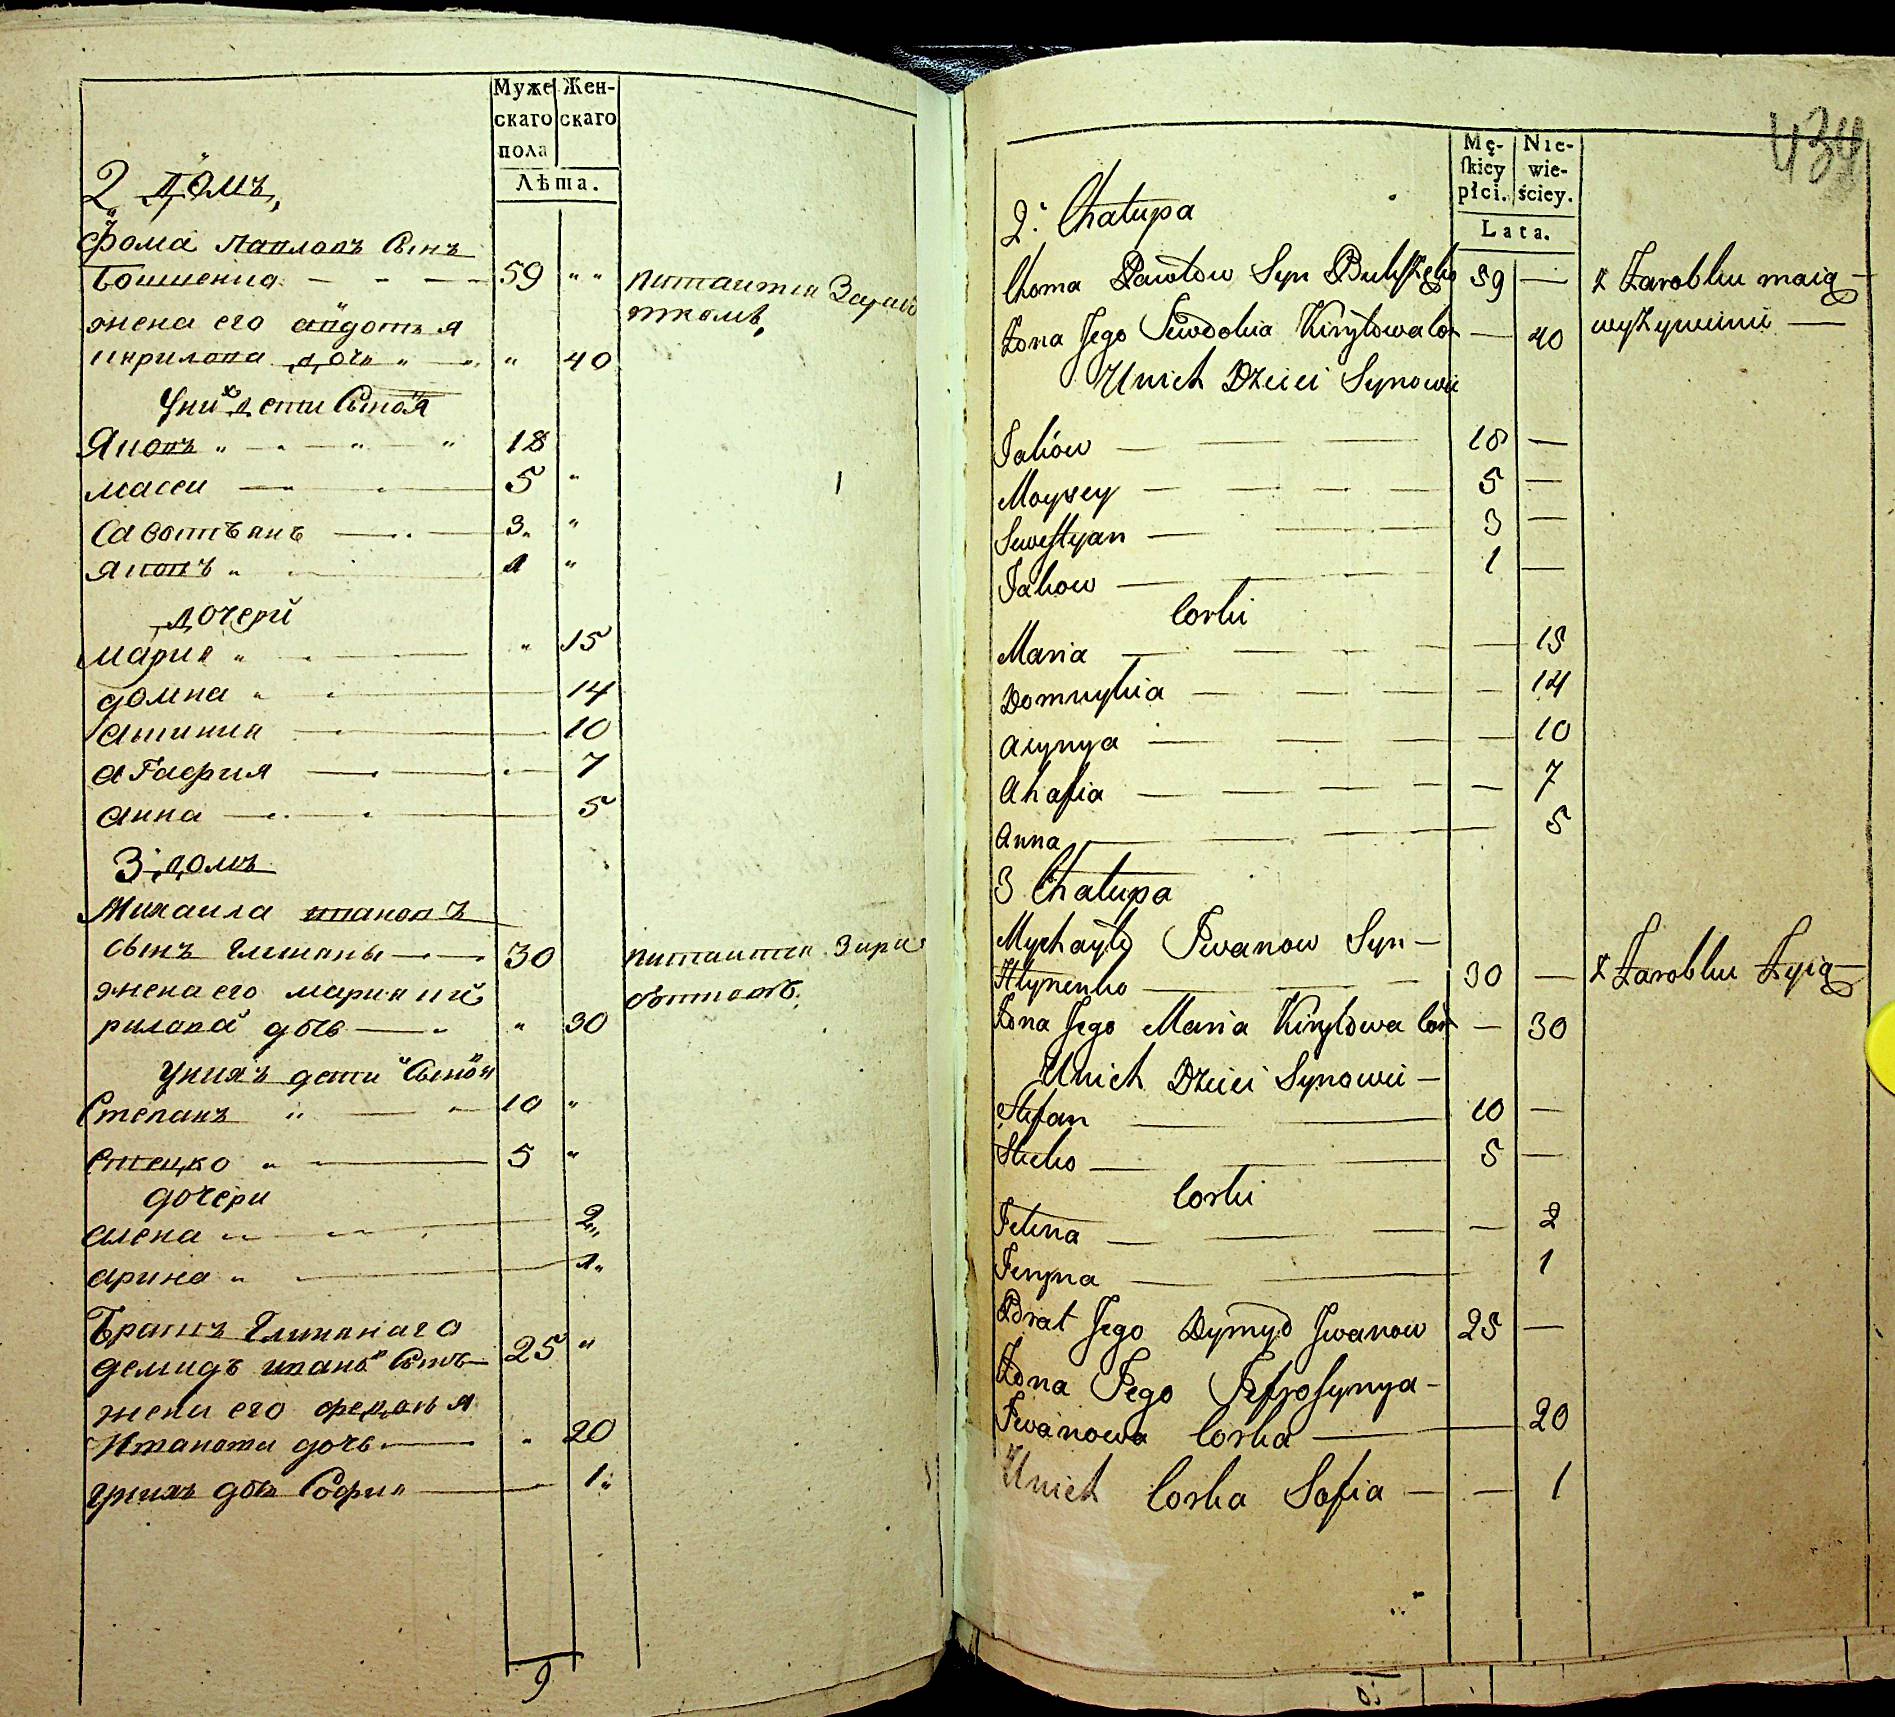 Муже Жен-
скаго скаго
пола
Лѣта.
2 Домъ,
Фома Павловъ Сынъ
59 " " питаитця
жена его авдотья
кирилова дочь " " " 40
Уних дети Сыновя
Яковъ " — " — " — " 18
масеи — " — 5 "
Савостьянъ — . — 3 "
яковъ " — 1 "
дочерй
Мария " — . — " 15
домна " — . — 14
10
агафия — . — . — 7
анна — . — . — 5
3 домъ
Михаила ивановъ
сынъ — . — 30 питаитця
жена его мария ки
рилова дочь — . " 30
Унихъ дети Сыновя
Степанъ " — " 10 "
Стецко " — 5 "
дочери
алена " — . — 2 "
арина " — 1 "
Братъ
демидъ иванов Сынъ 25 "
жена его
дочь . — . 20
унихъ дочь София — 1 "
9
434
Mę- Nie-
ſkiey wie-
płci. ściey.
Lata.
2. Chałupa
Choma Pawłow Syn 59 — z Zarobku maią —
Żona Jego Iewdokia Kiryłowa Cor — 40 wyżywinie —
Unich Dzieci Synowie
Jakow — — — 18 —
Moysey — — — — 5 —
Sewestyan — — — 3 —
Jakow — — — 1 —
Corki
Maria — — — — — 15
Domnykia — — — — — 14
Acynya — — — — 10
Ahafia — — — — — 7
Anna — — — 5
3 Chałupa
Mychayło Iwanow Syn —
Hłynenko — — 30 — z Zarobku Żyią —
Żona Jego Maria Kiryłowa Cor — 30
Unich Dzieci Synowie —
Stefan — — 10 —
Stecko — — 5 —
Corki
Jelena — — — — 2
Jeryna — — 1
Brat Jego Dymyd Iwanow 25 —
Żona Jego Jefrosynya —
Iwanowa Corka — — 20
Unich Corka Sofia — — 1